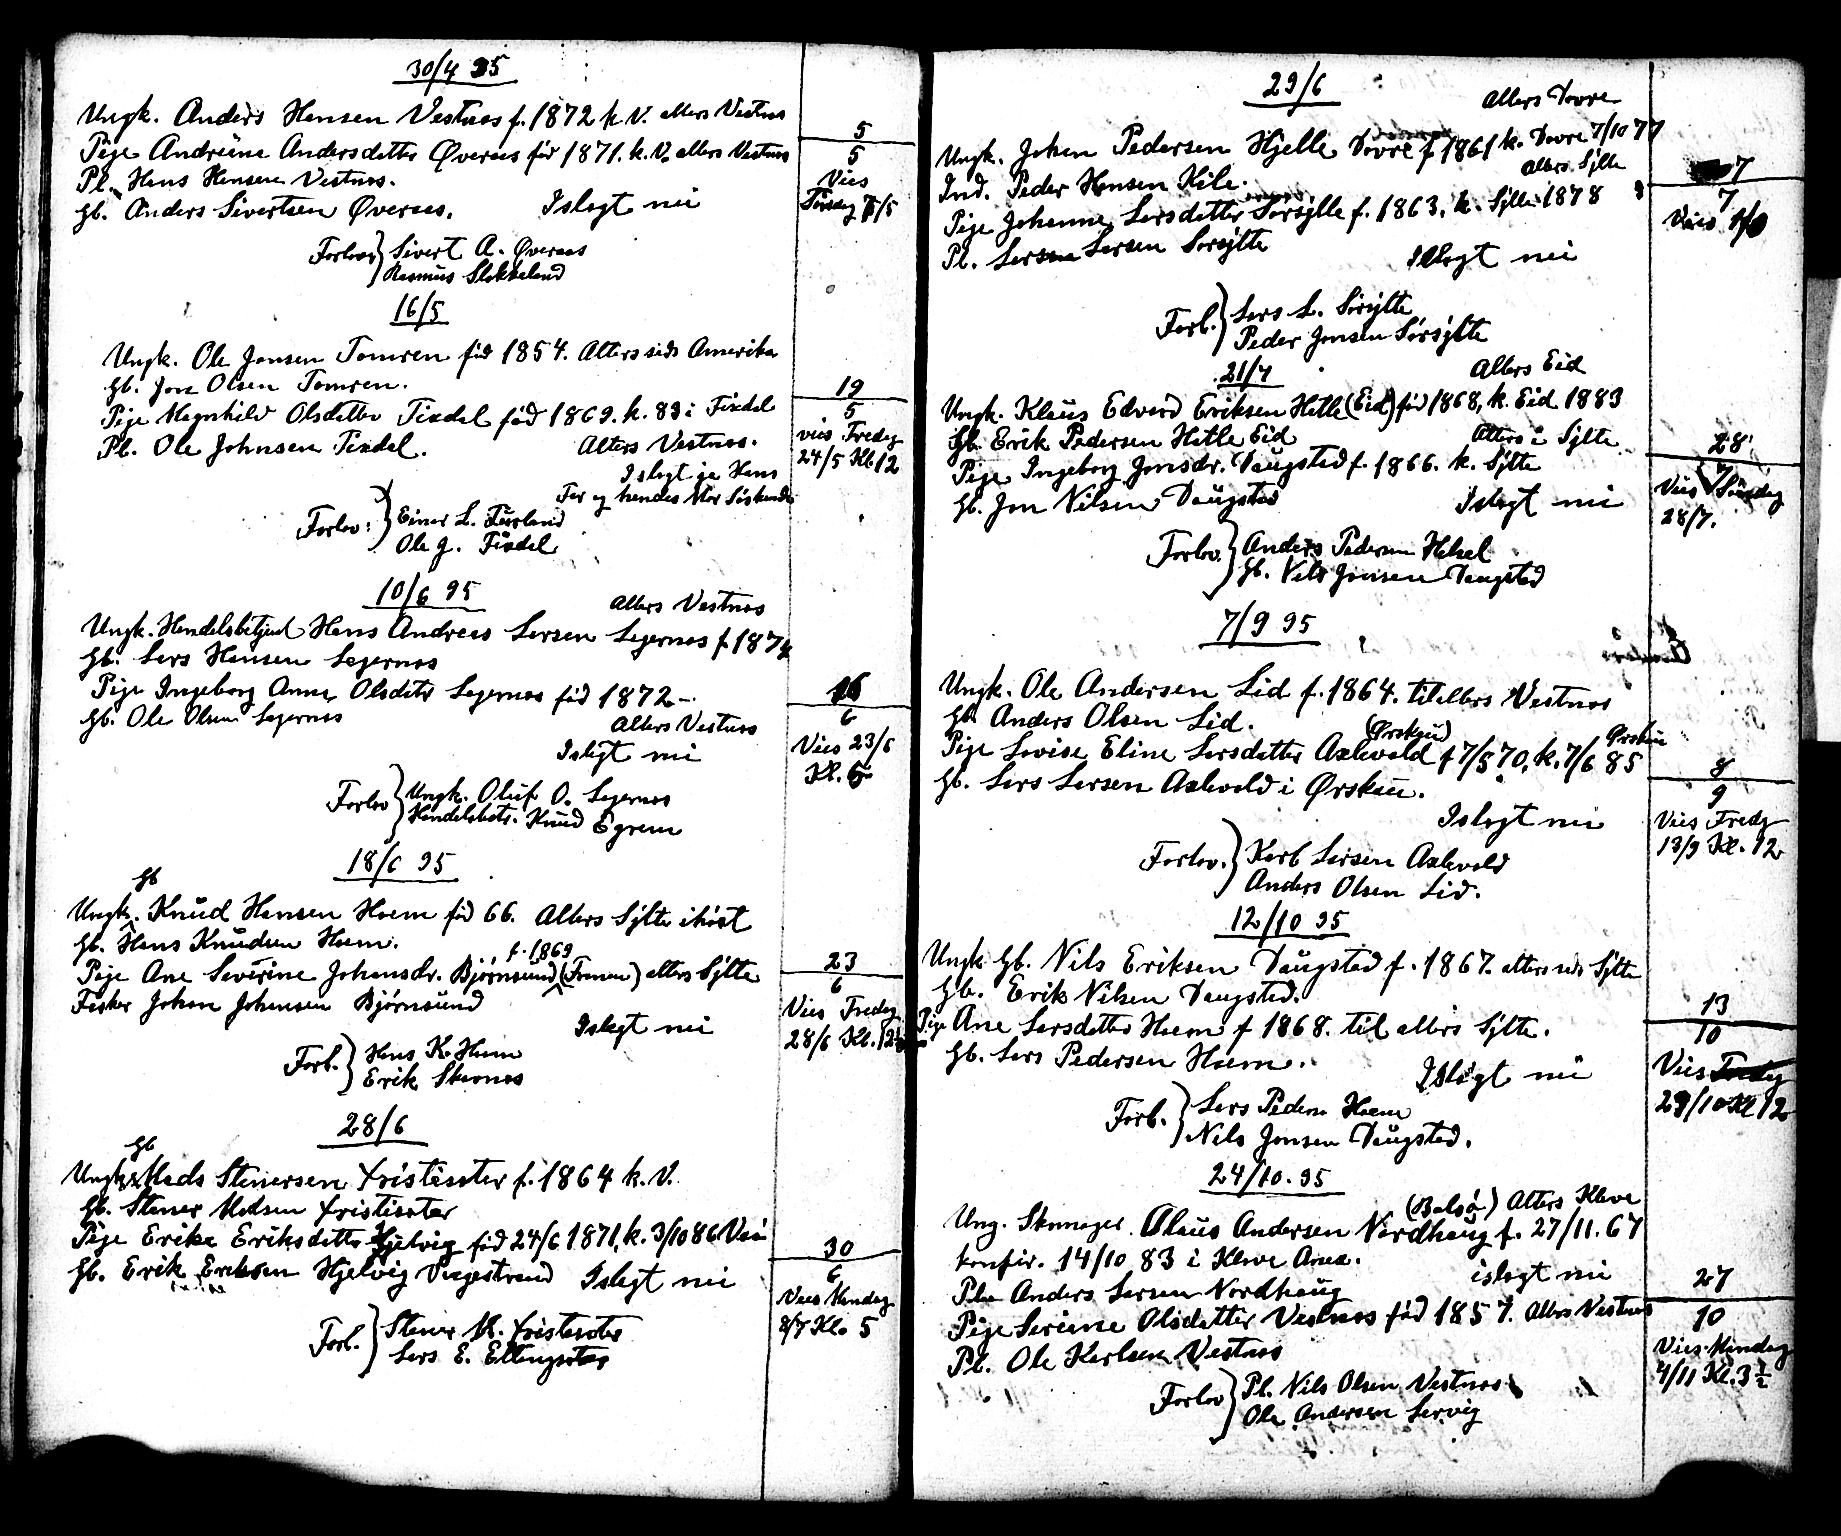 30/4 95
Ungk. Anders Hansen Vestnes f. 1872 k V. alters Vestnes
Pige Andrine Andersdatter Øveraas fød 1871. k. V. alters Vestnes
Pl. Hans Hansen Vestnes.
Gb. Anders Sivertsen Øveraas. Islegt nei
Forlov Sivert A. Øveraas
Rasmus Stokkeland
5
5
Vies
Tirsdag 7/5
16/5
Ungk. Ole Jonsen Tomren fød 1854. Alters sids Amerika
Gb. Jon Olsen Tomren.
Pige Magnhild Olsdatter Fixdel fød 1869. k. 83 i Fixdel
Pl. Ole Johnsen Fixdel. Alters Vestnes.
Islegt ja Hans
Far og hendes Mor Søskende
Forlov: Einar L.
Ole J. Fixdel
19
5
vies Fredag
24/5 Kl 12
10/6 95
Alters Vestnes
Ungk. Handelsbetjent Hans Andreas Larsen Legernes f 1874
Gb. Lars Hansen Legernes
Pige Ingeborg Anna Olsdatr Legernes fød 1872 -
Gb. Ole Olsen Legernes Alters Vestnes
Islegt nei
Forlov Ungk. Oluf O. Legernes
Handelsbetr. Knud Egrem
16
6
Vies 23/6
Kl. 5
18/6 95
Gb
Ungk. Knud Hansen Hoem fød 66. Alters Sylte i høst
Gb. Hans Knudsen Hoem.
f. 1869
Pige Ane Severine Johansdr. Bjørnsund (Frænen) alters Sylte
Fisker Johan Johansen Bjørnsund
Islegt nei
Forl. Hans K. Hoem
Erik
23
6
Vies Fredag
28/6 Kl. 12
28/6
Gb
Ungk. Mads Stenersen Fristisæter f. 1864 k. V.
Gb. Stener Madsen Fristisæter
Pige Erika Eriksdatter Hjelvig fød 24/6 1871, k. 3/10 86
Gb. Erik Eriksen Hjelvig Vaagestrand Islegt nei
Forl. Stener M. Fristisæter
Lars E. Ellingsæter
30
6
Vies Mandag
8/7 Kl. 5
29/6
Alters Dovre
Ungk. Johan Pedersen Hjelle Dovre f 1861 k. Dovre 7/10 77
Ind. Peder Hansen Kile. Alters Sylte
Pige Johanne Larsdatter Sørsylte f. 1863, k. Sylte 1878
Pl. Larsen Sørsylte
Islegt nei
Forl. Lars L. Sørsylte
Peder Jonsen Sørsylte
7
7
Vies
21/7
Alters Eid
Ungk. Klaus Edvard Eriksen Hatle (Eid) fød 1868, k. Eid 1883
Gb. Erik Pedersen Hatle Eid Alters i Sylte
Pige Ingeborg Jonsdr. Daugstad f. 1866. k. Sylte
Gb. Jon Nilsen Daugstad Islegt nei
Forlov. Anders Pedersen Helsel
Gb. Nils Jonsen Daugstad
28
7
Vies Søndag
28/7.
7/9 95
Ungk. Ole Andersen Lid f. 1864. til alters Vestnes
Gb. Anders Olsen Lid. (Ørskoug) Ørskou
Pige Lovise Eline Larsdatter Axlevold f 7/5 70, k. 7/6 85
Gb. Lars Larsen Axlevold i Ørskou.
Islegt nei
Forlov. Karl Larsen Axlevold
Anders Olsen Lid.
8
9
Vies Fredg
13/9 Kl. 12
12/10 95
Ungk Gb. Nils Eriksen Daugstad f. 1867. alters sids Sylte
Gb. Erik Nilsen Daugstad.
Pige Ane Larsdatter Hoem f 1868. til alters Sylte.
Gb. Lars Pedersen Hoem.
Islegt nei
Forl. Lars Pedersen Hoem
Nils Jonsen Daugstad.
13
10
Vies Fredag
29/10 Kl 12
24/10. 95
(Bolsø) Alters Kleve
Ung. Skomager. Olaus Andersen Nordhaug f. 27/11. 67
konfir. 14/10 83 i Kleve Annx.
islegt nei
Pl. Anders Larsen Nordhaug
Pige Serine Olsdatter Vestnes fød 1857. Alters Vestnes
Pl. Ole Karlsen Vestnes
Forlov Pl. Nils Olsen Vestnes
Ole Andersen
27
10
Vies Mandag
4/11 Kl. 3 1/2